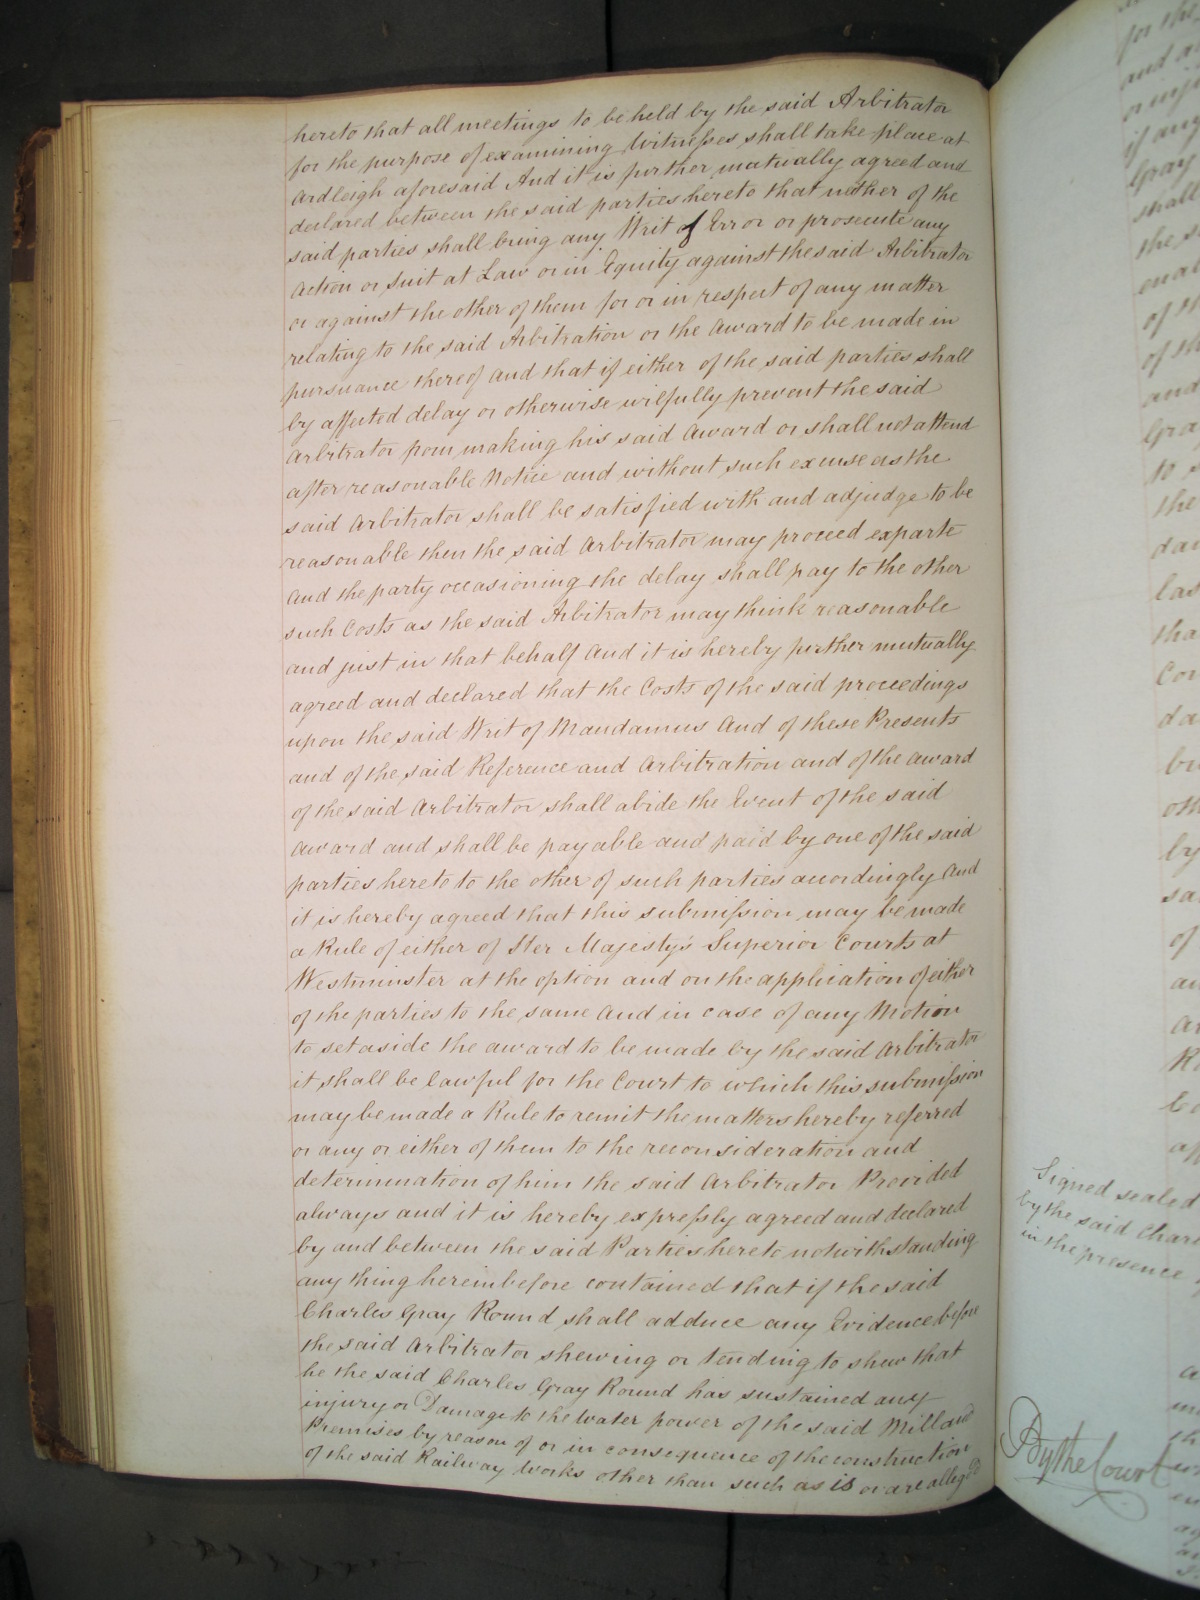 hereto that all meetings to be held by the said Arbitrator
for the purpose of examining Witnesses shall take place at
Ardleigh aforesaid And it is further mutually agreed and
declared between the said parties hereto that neither of the
said parties shall bring any Writ of Error or prosecute any
Action or Suit at Law or in Equity against the said Arbitrator
or against the other of them for or in respect of any matter
relating to the said Arbitration or the Award to be made in
pursuance thereof And that if either of the said parties shall
by affected delay or otherwise wilfully prevent the said
Arbitrator from making his said Award or shall not attend
after reasonable Notice and without such excuse as the
said Arbitrator shall be satisfied with and adjudge to be
reasonable then the said Arbitrator may proceed exparte
and the party occasioning the delay shall pay to the other
such Costs as the said Arbitrator may think reasonable
and just in that behalf And it is hereby further mutually
agreed and declared that the Costs of the said proceedings
upon the said Writ of Mandamus And of these Presents
and of the said Reference and Arbitration and of the Award
of the said Arbitrator shall abide the Event of the said
Award and shall be payable and paid by one of the said
parties hereto to the other of such parties accordingly And
it is hereby agreed that this submission may be made
a Rule of either of Her Majesty's Superior Courts at
Westminster at the option and on the application of either
of the parties to the same And in case of any Motion
to set aside the award to be made by the said Arbitrator
it shall be lawful for the Court to which this submission
may be made a Rule to remit the matters hereby referred
or any or either of them to the reconsideration and
determination of him the said Arbitrator Provided
always and it is hereby expressly agreed and declared
by and between the said Parties hereto notwithstanding
any thing hereinbefore contained that if the said
Charles Gray Round shall adduce any Evidence before
the said Arbitrator shewing or tending to shew that
he the said Charles Gray Round has sustained any
injury or Damage to the Water power of the said Mill and
Premises by reason of or in consequence of the construction
of the said Railway Works other than such as is or are alleged
Signed sealed
by the said Char
in the presence
By the Court